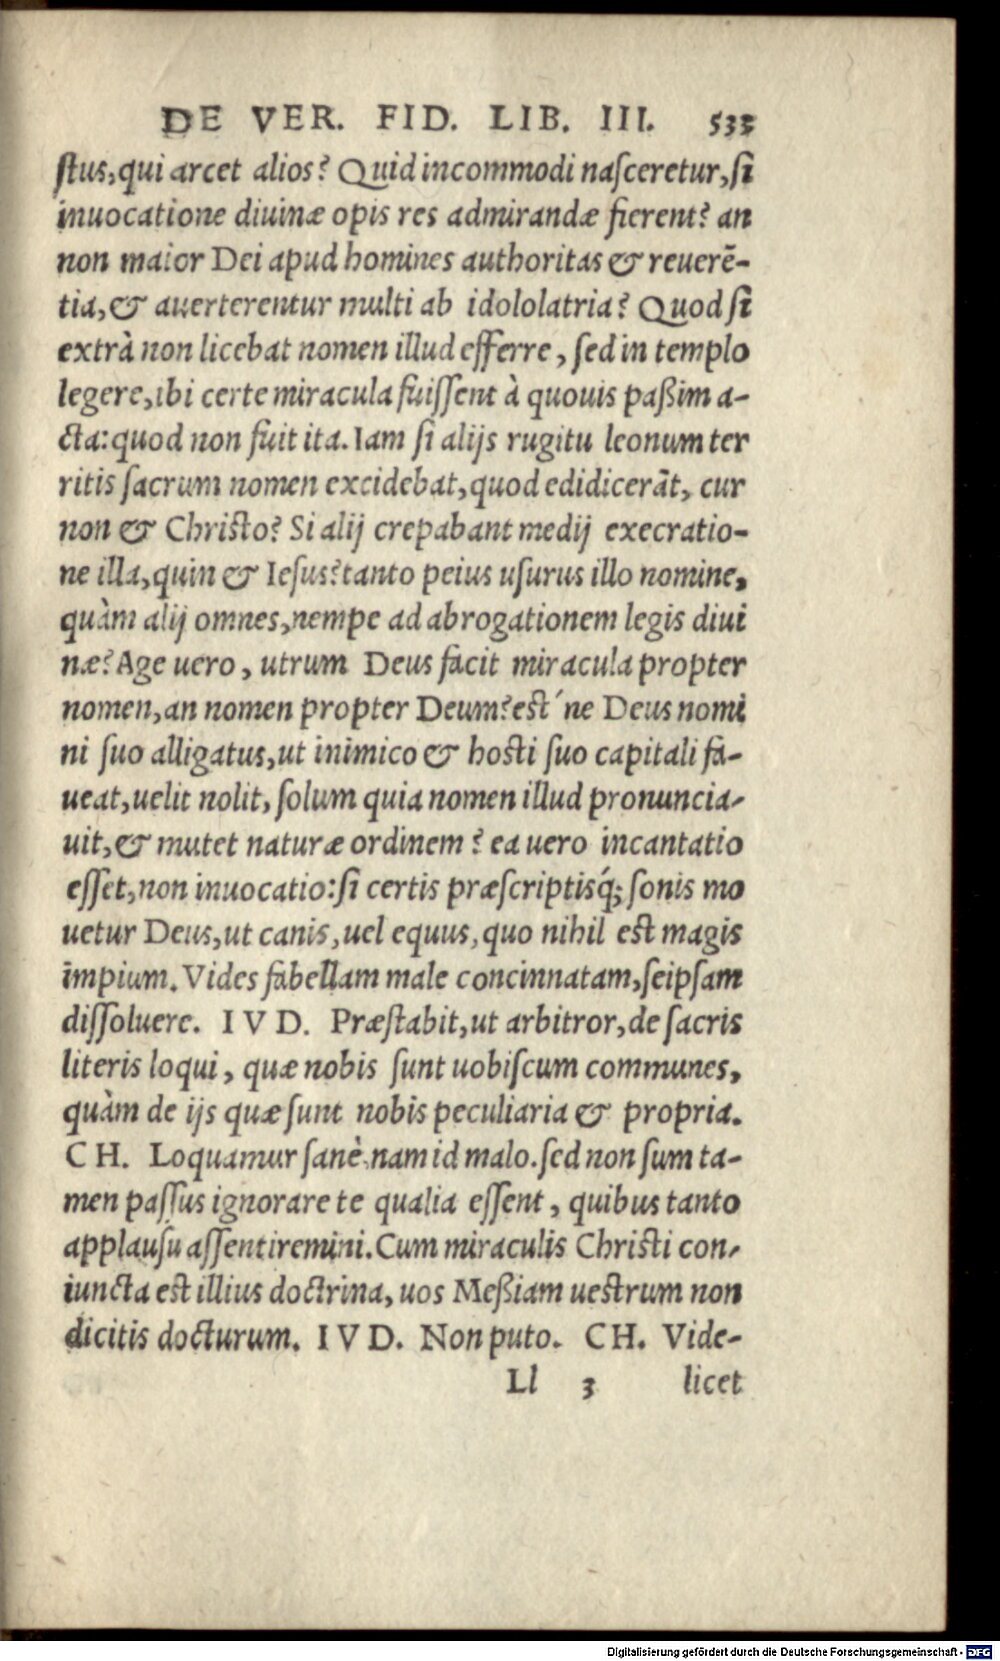 DE VER. FID. LIB. III. 533
ſtus, qui arcet alios? Quid incommodi naſceretur, ſi
inuocatione diuinæ opis res admirandæ fierent? an
non maior Dei apud homines authoritas & reuerẽ-
tia, & auerterentur multi ab idololatria? Quod ſi
extrà non licebat nomen illud efferre, ſed in templo
legere, ibi certe miracula fuiſſent à quouis paßim a-
cta: quod non fuit ita. Iam ſi alijs rugitu leonum ter
ritis ſacrum nomen excidebat, quod edidicerãt, cur
non & Chriſto? Si alij crepabant medij execratio-
ne illa, quin & Ieſus? tanto peius uſurus illo nomine,
quàm alij omnes, nempe ad abrogationem legis diui
næ? Age uero, utrum Deus facit miracula propter
nomen, an nomen propter Deum? eſt´ne Deus nomi
ni ſuo alligatus, ut inimico & hoſti ſuo capitali fa-
ueat, uelit nolit, ſolum quia nomen illud pronuncia-
uit, & mutet naturæ ordinem? ea uero incantatio
eſſet, non inuocatio: ſi certis præſcriptisq́; ſonis mo
uetur Deus, ut canis, uel equus, quo nihil eſt magis
impium. Vides fabellam male concinnatam, ſeipſam
diſſoluere. IVD. Præſtabit, ut arbitror, de ſacris
literis loqui, quæ nobis ſunt uobiſcum communes,
quàm de ijs quæ ſunt nobis peculiaria & propria.
CH. Loquamur ſanè, nam id malo. ſed non ſum ta-
men paſſus ignorare te qualia eſſent, quibus tanto
applauſu aſſentiremini. Cum miraculis Chriſti con-
iuncta eſt illius doctrina, uos Meßiam ueſtrum non
dicitis docturum. IVD. Non puto. CH. Vide-
Ll 3 licet
Digitalisierung gefördert durch die Deutsche Forschungsgemeinschaft - DFG